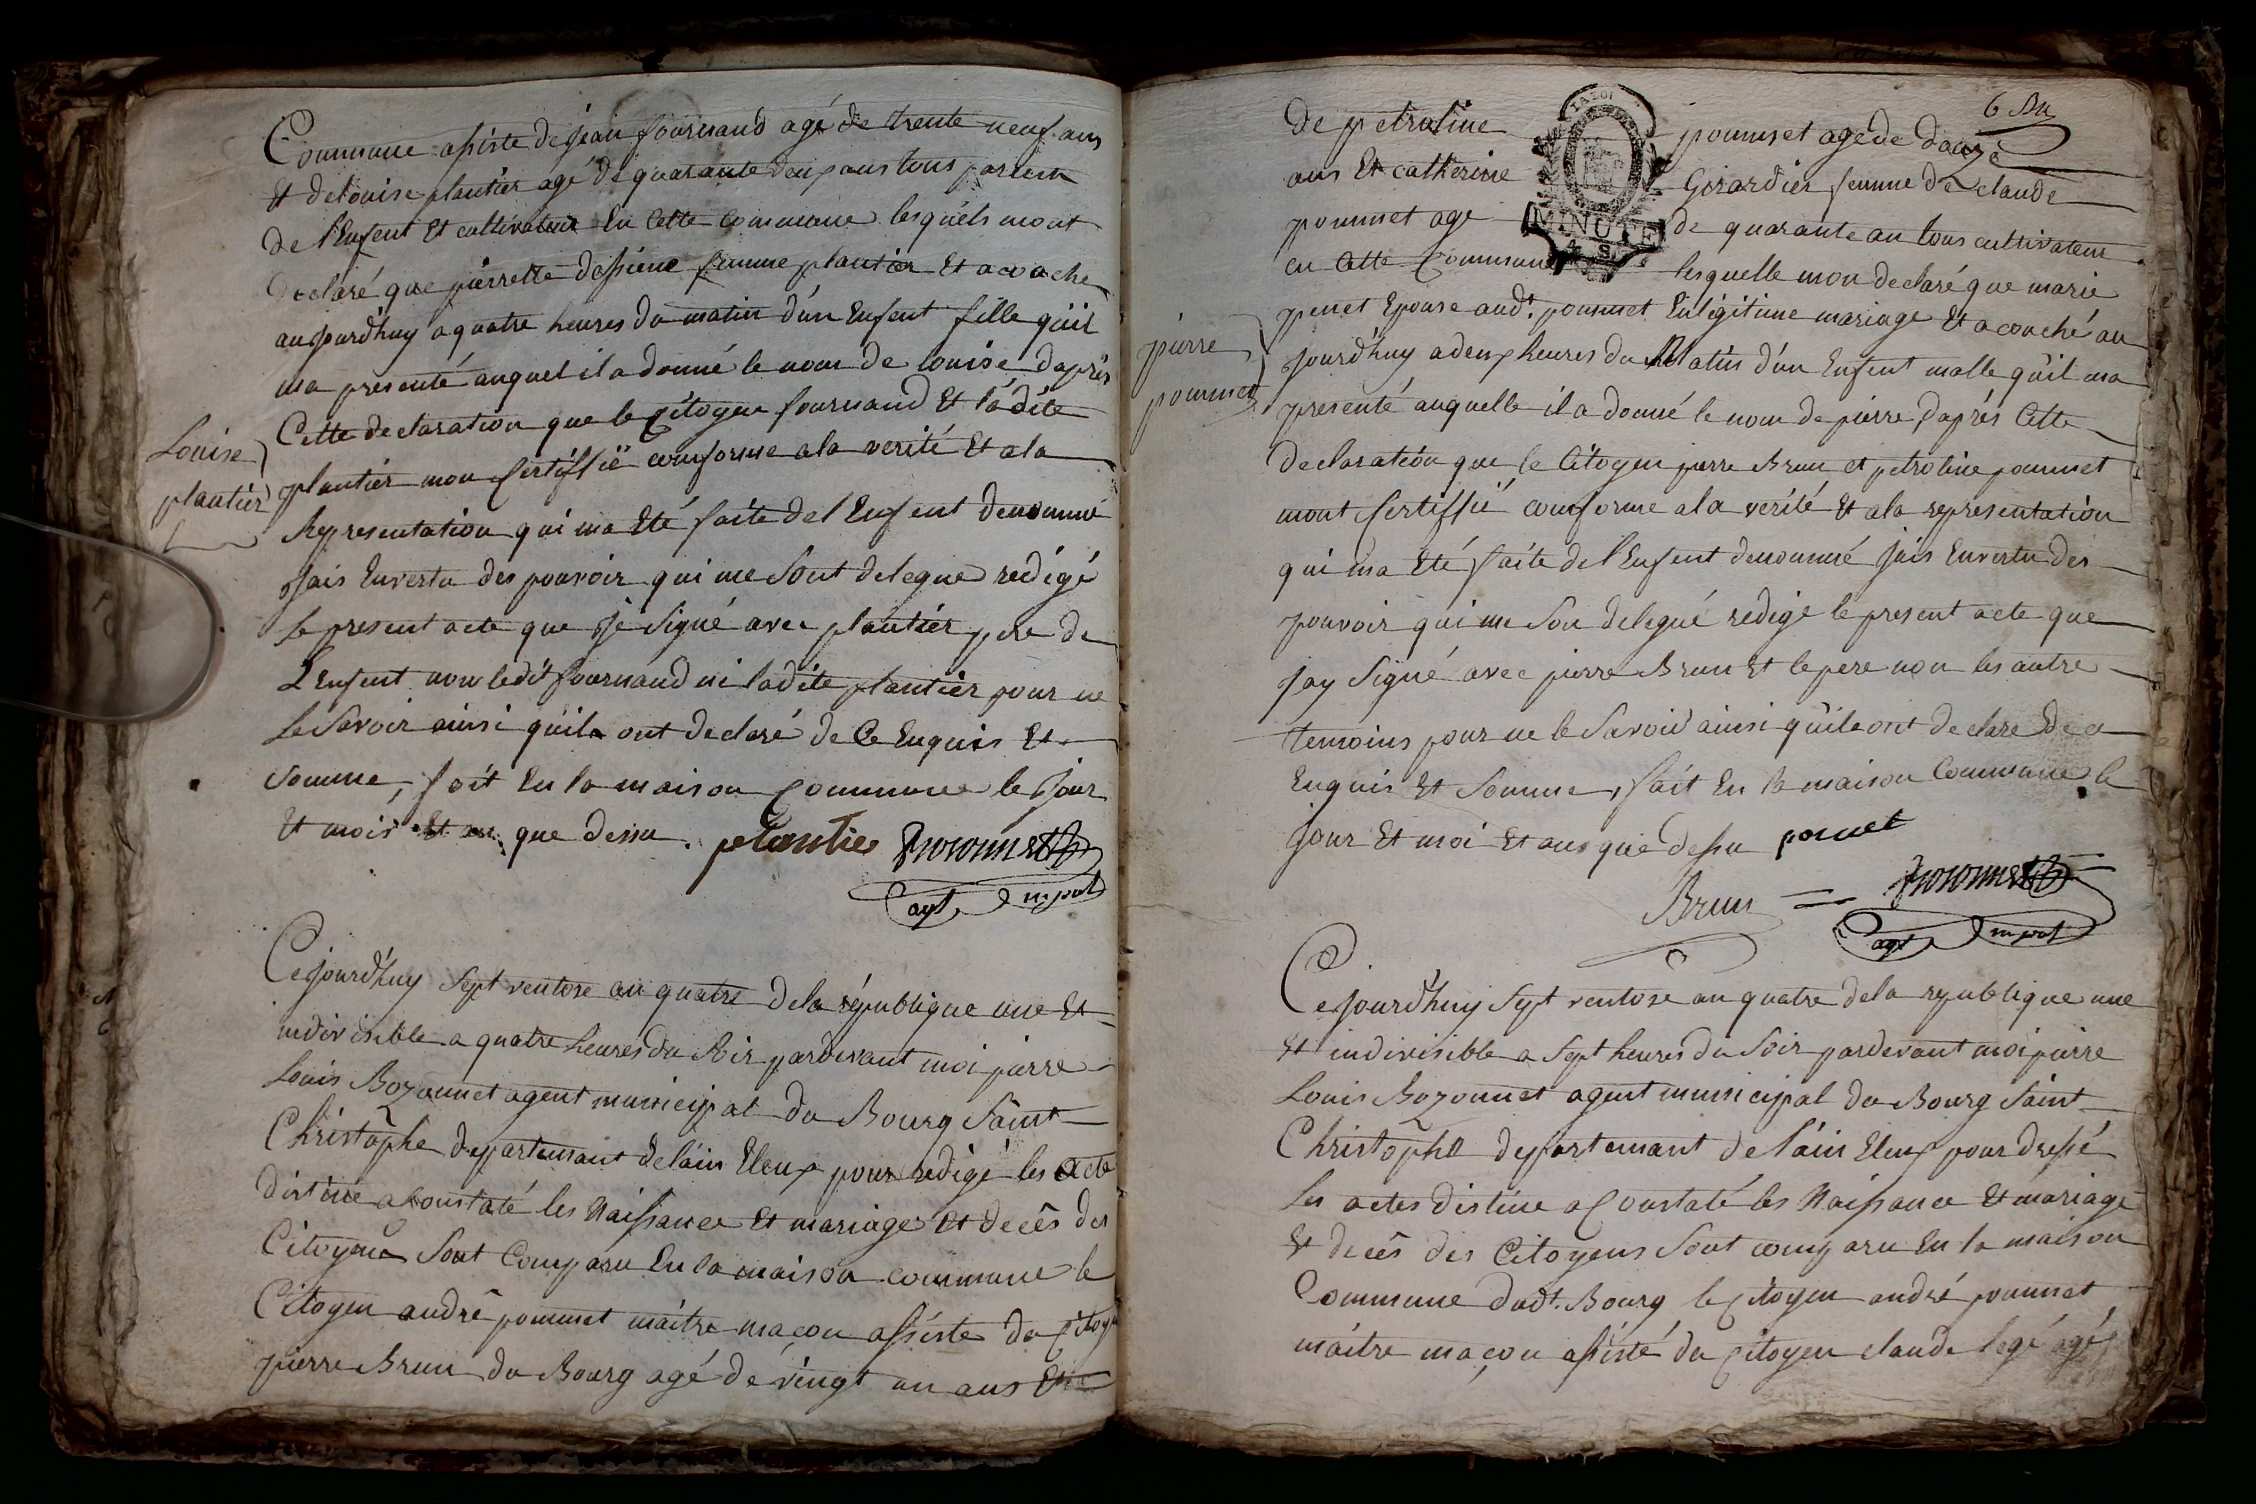 Commune assiste de jean fournand agé de trente neuf ans
Et de louise plantier agé de quarante deux ans tous
de l'Enfent Et cultivateur En Cette Commune lesquels mont
declaré que pierrette dessiene femme plantier Et acouche
aujourd'huy a quatre heures du matin d'un Enfent fille quil
ma presenté auquel il a donné le nom de louise dapris
Cette declaration que le Citoyen fournand Et ladite
plantier mon sertiffié conforme ala verité Et ala
Louise
plantier
Representation qui ma Eté faite del Enfent denommé
jais Envertu des pouvoir qui me Sont delegué redigé
le present acte que je Signé avec plantier pere de
L'Enfent non ledit fournand ni ladite plantier pour ne
le Savoir ainsi quila ont declaré de Ce Enquis Et
Somme, fait En la maison Commune le jour
Et mois Et an que dessu. plantier Bozonnet
agt mpal
Cejourd'huy Sept ventose an quatre dela république une Et
indivisible a quatre heures du Soir pardevant moi pierre
Louis Bozonnet agent municipal du Bourg Saint
Christophe departemant delain Eleux pour redigé les acte
distine a Constaté les Naissance Et mariage Et decês des
Citoyens Sont Comparu En la maison commune le
Citoyen andrê pommet maitre maçon assiste du Citoy
pierre Brun du Bourg agé de vingt un ans Et
6
de petroline pommet age de douze
ans Et catherine Girardier femme de claude
pommet age de quarante an tous cultivateur
MINUTE
en Cette Commune lesquelle mon declaré que marie
penet Epouse audt. pommet En légitime mariage Et a couché au
pierre
pommet
jourd'huy a deux heures du Matin d'un Enfent malle quil ma
presenté auquelle il a donné le nom de pierre, d'aprés Cette
declaration que le Citoyen pierre Brun et petroline pommet
mont sertiffié conforme ala verité Et ala representation
qui ma Eté faite del'Enfent denommé jais Envertu des
pouvoir qui me Son delegué redige le present acte que
jay Signé avec pierre Brun Et le pere non les autre
temoins pour ne le Savoir ainsi quile ont declare de a
Enquis Et Somme, fait En la maison Commune le
jour Et moi Et ans que dessu pomet
Brun Bozonnet
agt mpal
Cejourd'huy Sept ventose an quatre dela republique une
Et indivisible a Sept heures du Soir pardevant moi pierre
Louis Bozonnet agent municipal du Bourg Saint
Christophe departemant de l'ain Eleux pour dressé
les actes distine a Constaté les Naissance Et mariage
Et decês des Citoyens Sont comparu En la maison
Commune dudt. Bourg le Citoyen andré pommet
maitre maçon assisté du Citoyen claude legé agé